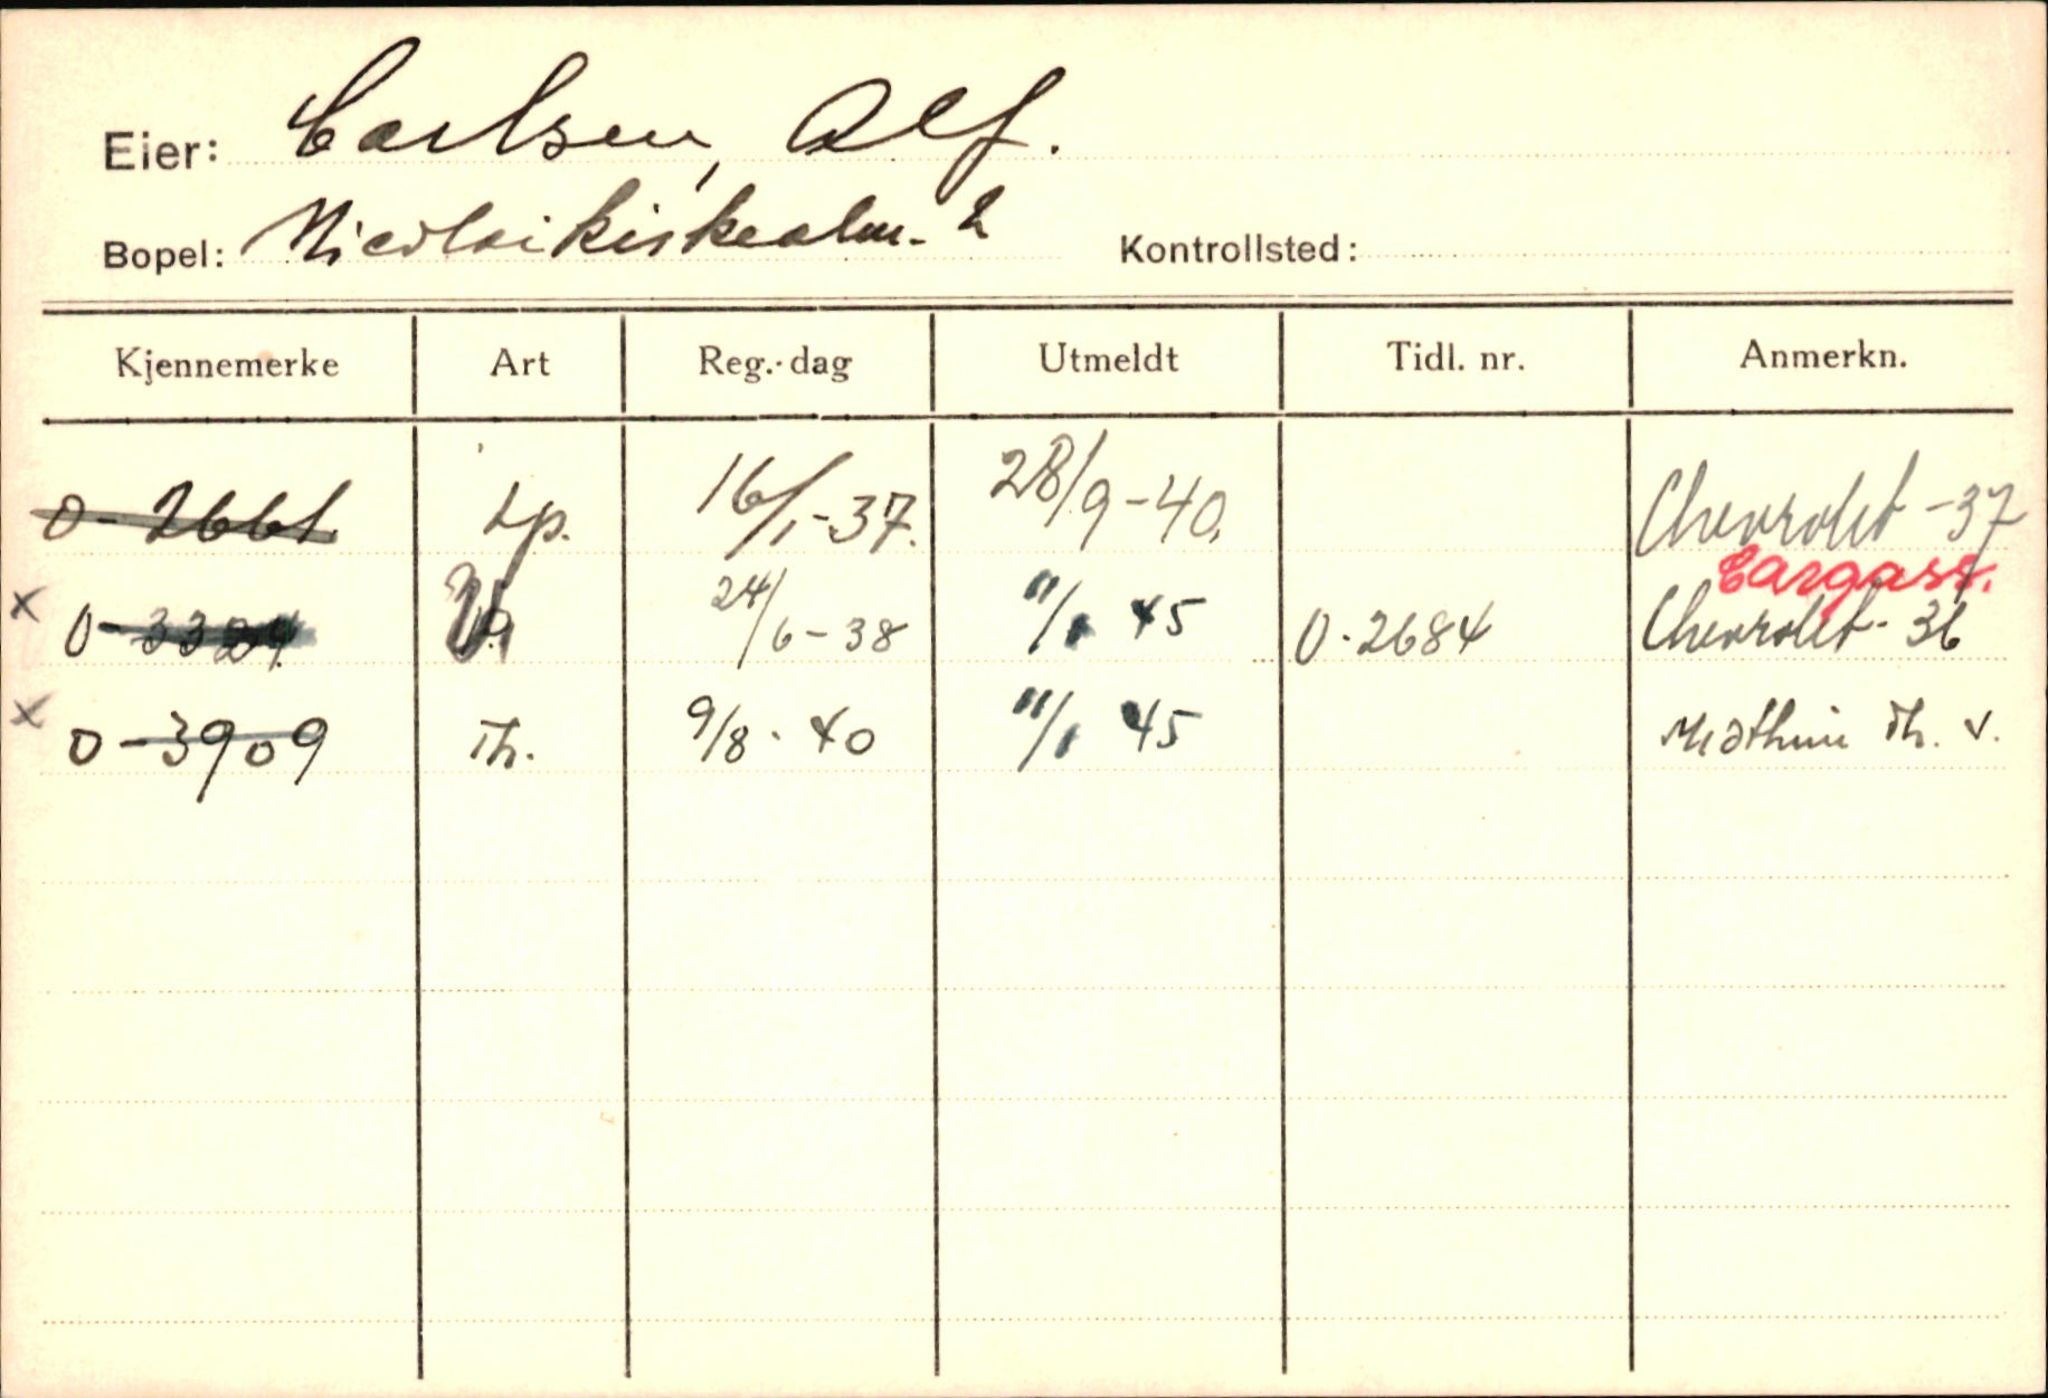 Eier: Carlsen, Alf.
Bopel: Nicolaikirkealm. 2 Kontrollsted:
Kjennemerke Art Reg.-dag Utmeldt Tidl. nr. Anmerkn.
O-2661. Lp. 16/1-37. 28/9-40. Chevrolet -37
Cargass.
x O-3324 24/6-38 11/1 45 O-2684 Chevrolet-36
x O-3909 Th. 9/8-40 11/1 45 Th. v.